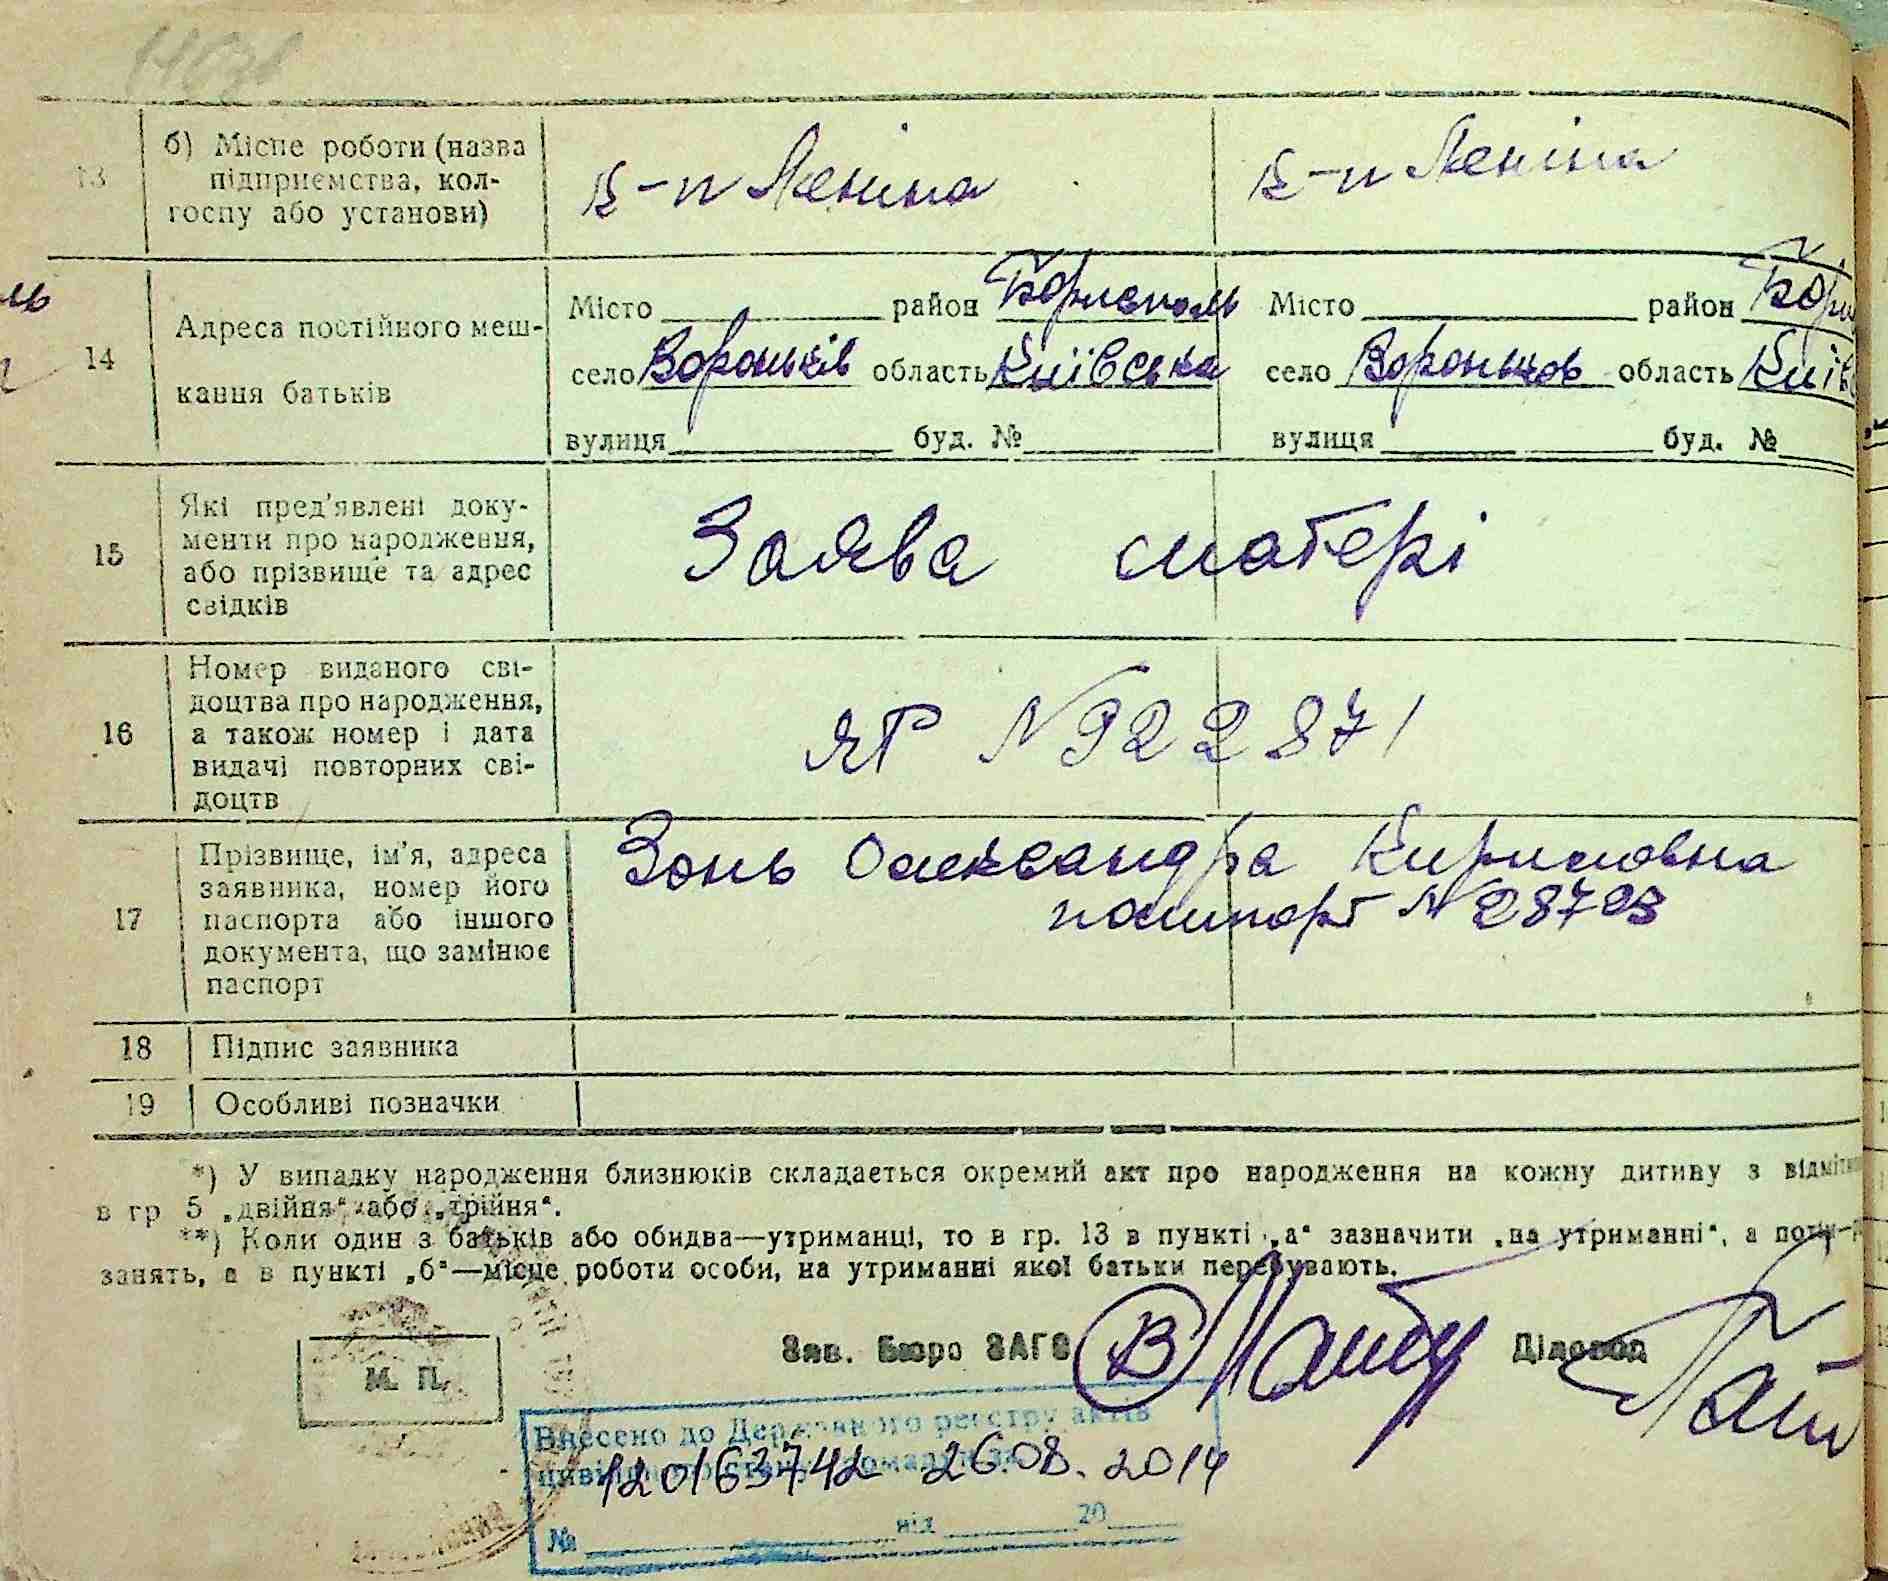 13 б) Місце роботи (назва підприємства, колгоспу або установи) к-п Леніна к-п Леніна
14 Адреса постійного мешкання батьків
Місто район Бориспольс Місто район Бори
село Вороньків область Київська село Вороньков область Київ
вулиця буд. № вулиця буд. №
15 Які пред'явлені документи про народження, або прізвище та адрес свідків Заява матері
16 Номер виданого свідоцтва про народження, а також номер і дата видачі повторних свідоцтв ЯР N 922871
17 Прізвище, ім'я, адреса заявника, номер його паспорта або іншого документа, що замінює паспорт Зонь Олександра Кириловна
пашпорт N 28793
18 Підпис заявника
19 Особливі позначки
*) У випадку народження близнюків складається окремий акт про народження на кожну дитину з відміт
в гр 5 „двійня“ або „трійня“.
**) Коли один з батьків або обидва—утриманці, то в гр. 13 в пункті „а“ зазначити „на утриманні“, а
занять, а в пункті „б“—місце роботи особи, на утриманні якої батьки перебувають.
Зав. Бюро ЗАГС Діловод
М. П.
Внесено до Державного реєстру актів
цивільного стану громадян за
120163742 26.08.2014
№ від 20